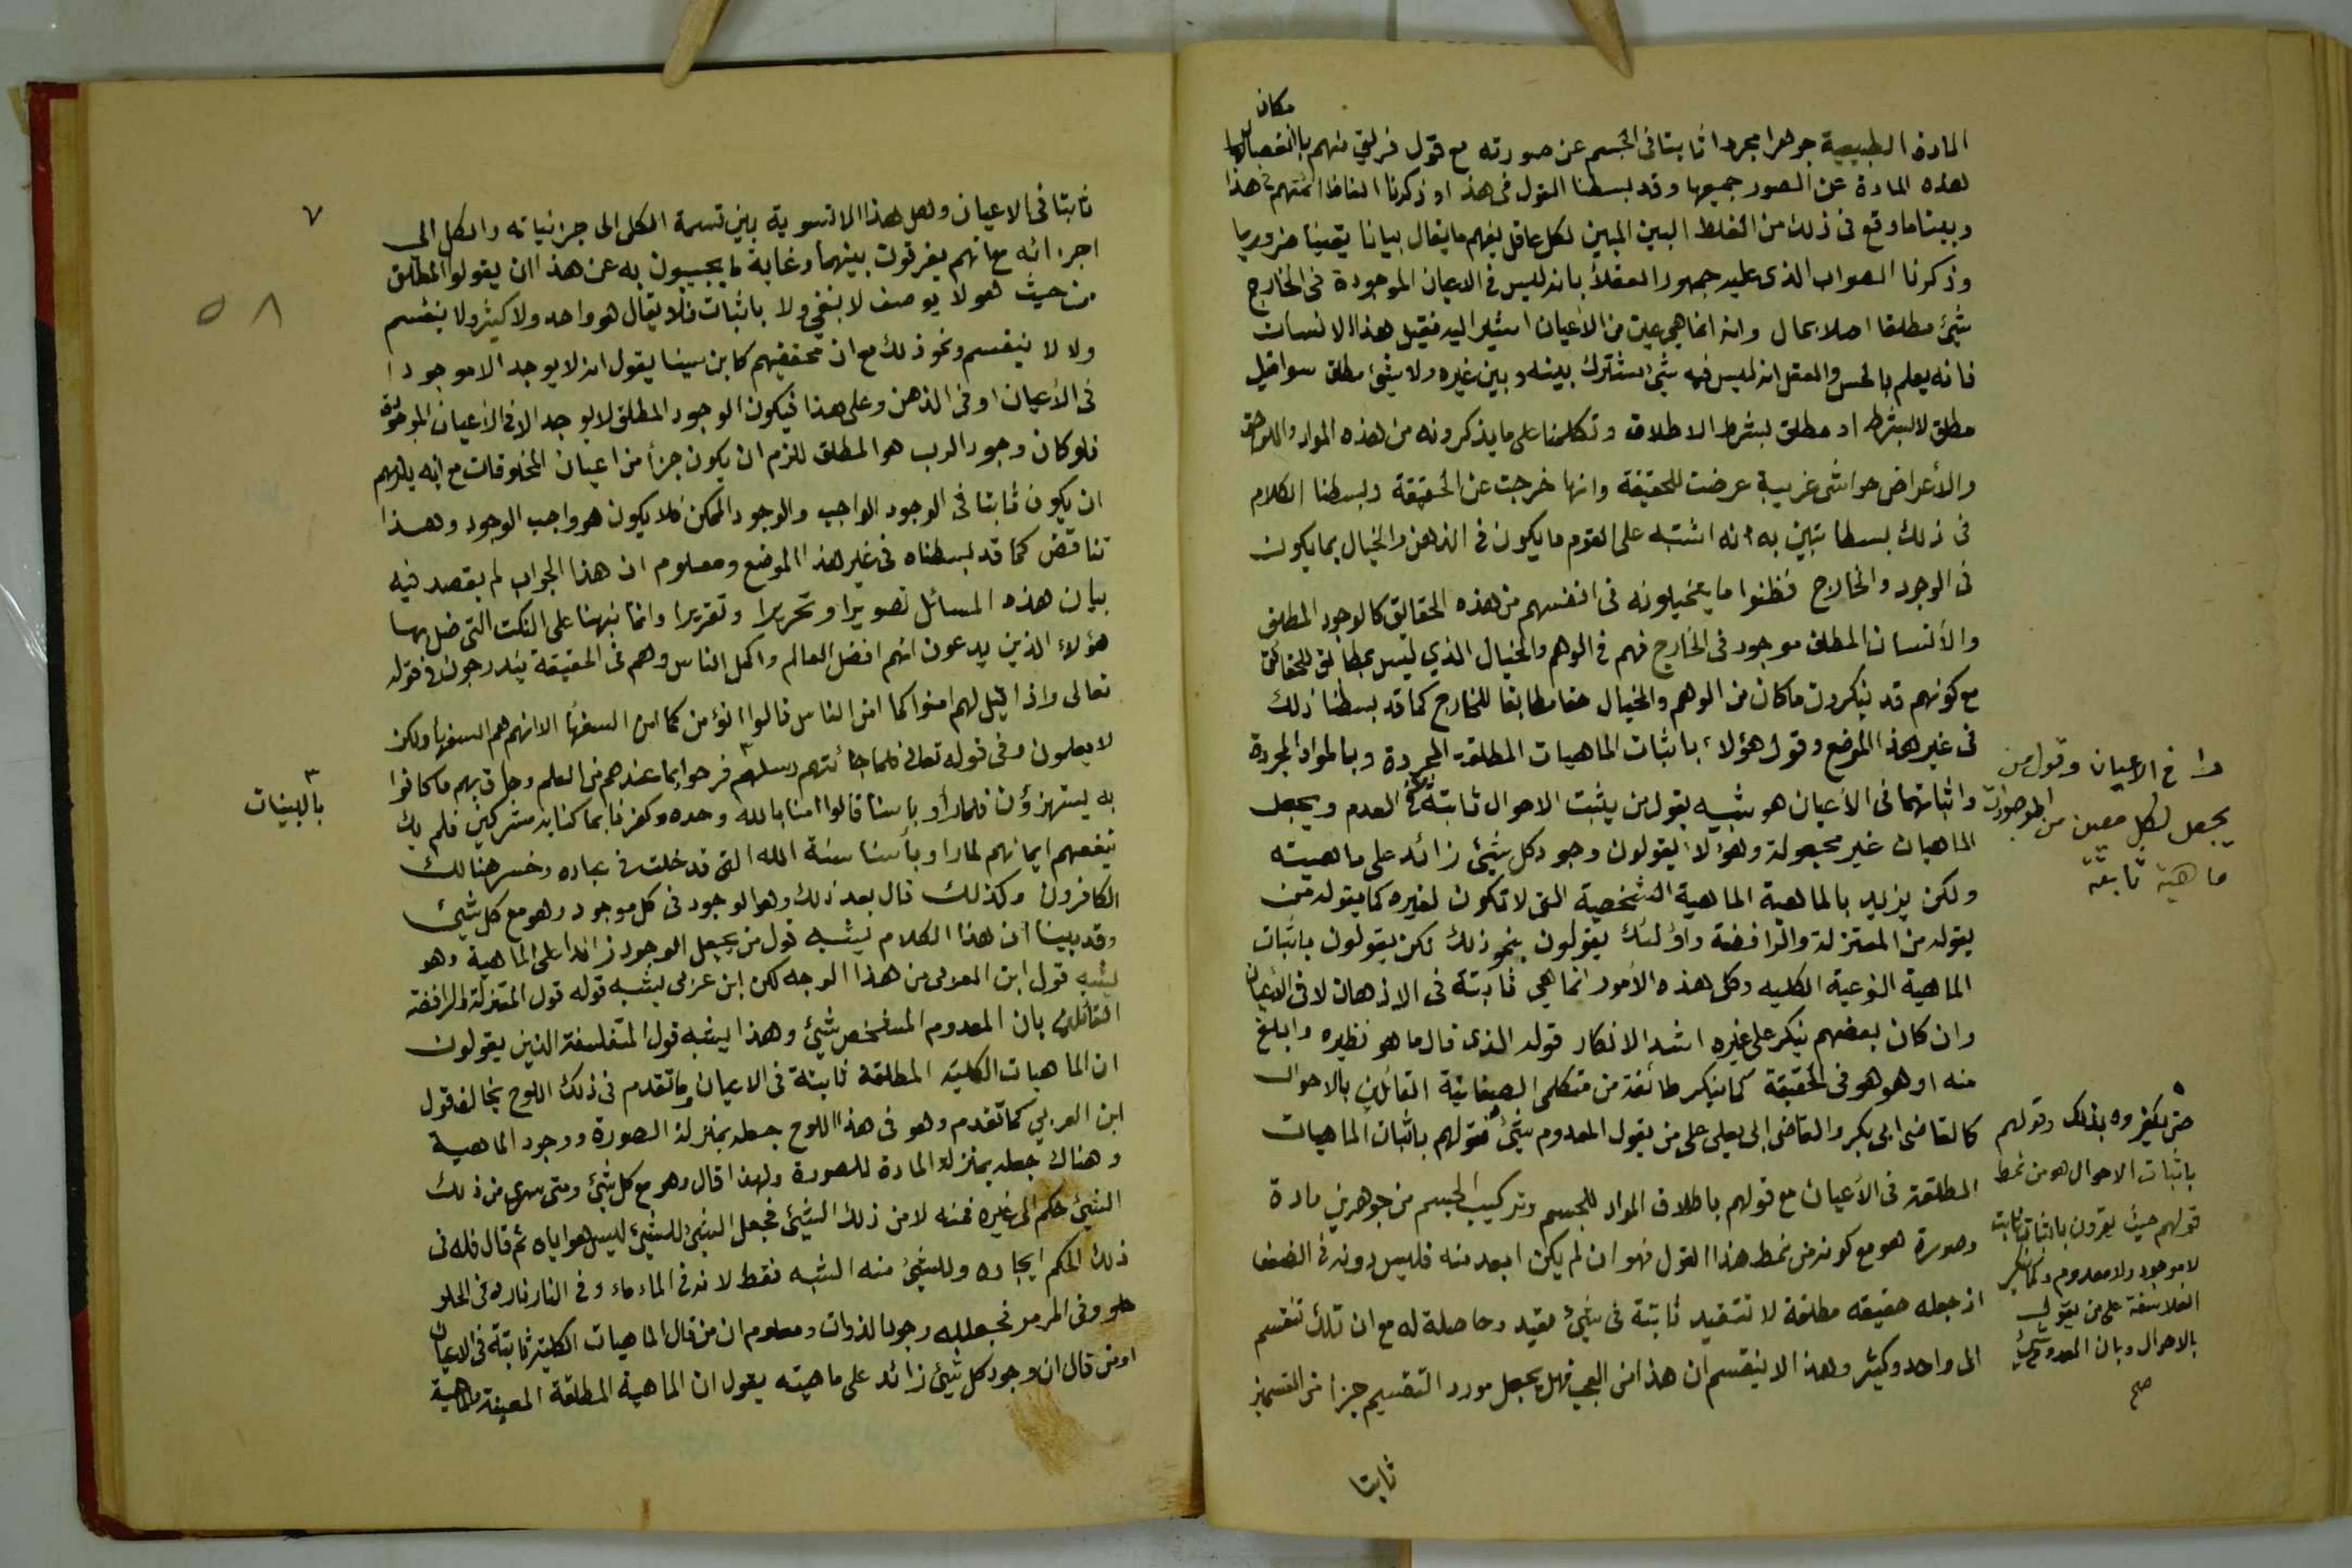 مكان
المادة الطبيعية جوهرا مجردا ثابتا فى الجسم عن صورته مع قول فريق منهم بانفصال
هذه المادة عن الصور جميعها وقد بسطنا القول فى هذا وذكرنا الفاظ ائمتهم فى هذا
وبينا ما وقع فى ذلك من الغلط البين المبين لكل عاقل يفهم ما يقال بيانا يقينيا ضروريا
وذكرنا الصواب الذى عليه جمهور العقلأ بانه ليس فى الاعيان الموجودة فى الخارج
شيئ مطلقا اصلا بحال وانه انما هي عين من الأعيان اشير اليه فقيل هذا الانسان
فانه يعلم بالحس والعقل انه ليس فيه شئ اشترك بينه وبين غيره ولا شئ مطلق سواقيل
مطلق لا بشرط او مطلق بشرط الاطلاق وتكلمنا على ما يذكرونه من هذه المواد واللواحق
والأعراض حواشى غريبة عرضت للحقيقة وانها خرجت عن الحقيقة وبسطنا الكلام
فى ذلك بسطا تبين به انه اشتبه على القوم ما يكون فى الذهن والخيال بما يكون
فى الوجود والخارج فظنوا ما يتخيلونه فى انفسهم من هذه الحقائق كالوجود المطلق
والأنسان المطلق موجود فى الخارج فهم فى الوهم والخيال الذي ليس بمطابق للحقائق
مع كونهم قد ينكرون ما كان من الوهم والخيال حقا مطابقا للخارج كما قد بسطنا ذلك
فى غير هذا الموضع وقول هؤلاء باثبات الماهيات المطلقة المجردة وبالمواد المجردة
واثباتهما فى الأعيان هو شبيه بقول من يثبت الاحوال ثابتة فى العدم ويجعل
الماهيات غير مجعولة وهؤلا يقولون وجود كل شيئ زائد على ماهيته
ولكن يريد بالماهية الماهية الشخصية التى لا تكون لغيره كما يقوله من
يقوله من المعتزلة والرافضة واولئك يقولون بنحو ذلك لكن يقولون باثبات
الماهية النوعية الكليه وكل هذه الأمور انما هي ثابتة فى الاذهان لا فى الأعيان
وان كان بعضهم ينكر على غيره اشد الانكار قوله الذى قال ما هو نظيره وابلغ
منه او هو هو فى الحقيقة كما ينكر طائفة من متكلمى الصفاتية القائلين بالاحوال
كالقاضى ابى بكر والقاضى ابى يعلى على من يقول المعدوم شئ فقولهم باثبات الماهيات
المطلقة فى الأعيان مع قولهم باطلاق المواد للجسم وتركيب الجسم من جوهرين مادة
وصورة هو مع كونه من نمط هذا القول فهو ان لم يكن ابعد منه فليس دونه فى الضعف
اذ جعله حقيقه مطلقة لا تتقيد ثابتة فى شئ مقيد وحاصلة له مع ان تلك تنقسم
الى واحد وكثير وهذا لا ينقسم ان هذا من العجب فهل يجعل مورد التقسيم جزا من القسمين
ثابتا
فى الاعيان وقول من
يجعل لكل معين من الموجودات
ماهية ثابتة
حتى يكفروه بذلك وقولهم
باثبات الاحوال هو من نمط
قولهم حيث يقرون باثباتها ثابتة
لا موجود ولا معدوم وكما ينكر
الفلاسفة على من يقول
بالاحوال وبان المعدوم شئ
صح
٧
٥٨
ثابتا فى الاعيان وهل هذا الا تسوية بين قسمة الكلى الى جزئياته والكل الى
اجزائه مع انهم يفرقون بينهما وغاية ما يجيبون به عن هذا ان يقولوا المطلق
من حيث هو لا يوصف لا بنفى ولا باثبات فلا يقال هو واحد ولا كثير ولا ينقسم
ولا لا ينقسم ونحو ذلك مع ان محققيهم كابن سينا يقول انه لا يوجد الا موجودا
فى الأعيان او فى الذهن وعلى هذا فيكون الوجود المطلق لا يوجد الا فى الأعيان الموجودة
فلو كان وجود الرب هو المطلق للزم ان يكون جزأ من اعيان المخلوقات مع انه يلزمهم
ان يكون ثابتا فى الوجود الواجب والوجود الممكن فلا يكون هو واجب الوجود وهذا
تناقض كما قد بسطناه فى غير هذا الموضع ومعلوم ان هذا الجواب لم يقصد فيه
بيان هذه المسائل تصويرا وتحريرا وتقريرا وانما نبهنا على النكت التى ضل بها
هؤلاء الذين يدعون انهم افضل العالم واكمل الناس وهم فى الحقيقة يندرجون فى قوله
تعالى واذا قيل لهم امنوا كما امن الناس قالوا انؤمن كما امن السفهأ الا انهم هم السفهأ ولكن
لا يعلمون وفى قوله تعالى فلما جائتهم رسلهم فرحوا بما عندهم من العلم وحاق بهم ما كانوا
به يستهزؤن فلما رأو بأسنا قالوا امنا بالله وحده وكفرنا بما كنا به مشركين فلم يك
ينفعهم ايمانهم لما راو بأسنا سنة الله التى قد خلت فى عباده وخسر هنالك
الكافرون وكذلك قال بعد ذلك وهو الوجود فى كل موجود وهو مع كل شيئ
وقد بينا ان هذا الكلام يشبه قول من يجعل الوجود زائدا على الماهية وهو
يشبه قول ابن العربى من هذا الوجه لكن ابن عربى يشبه قوله قول المعتزلة والرافضة
القائلين بان المعدوم المشخص شيئ وهذا يشبه قول المتفلسفة الذين يقولون
ان الماهيات الكلية المطلقة ثابتة فى الاعيان وما تقدم فى ذلك اللوح يخالف قول
ابن العربي كما تقدم وهو فى هذا اللوح جعله بمنزلة الصورة ووجود الماهية
وهناك جعله بمنزلة المادة للصورة ولهذا قال وهو مع كل شئ ومتى سرى من ذلك
الشيئ حكم الى غيره فمنه لا من ذلك الشيئ فجعل الشئ للشيئ ليس هو اياه ثم قال فله فى
ذلك الحكم ايجاده وللشئ منه الشبه فقط لانه فى الماء ماء وفى النار نار وفى الحلو
حلو وفى المر مر فجعله وجود الذوات ومعلوم ان من قال الماهيات الكلية ثابتة فى الاعيان
او من قال ان وجود كل شئ زائد على ماهيته يقول ان الماهية المطلقة المعينة والماهية
بالبينات